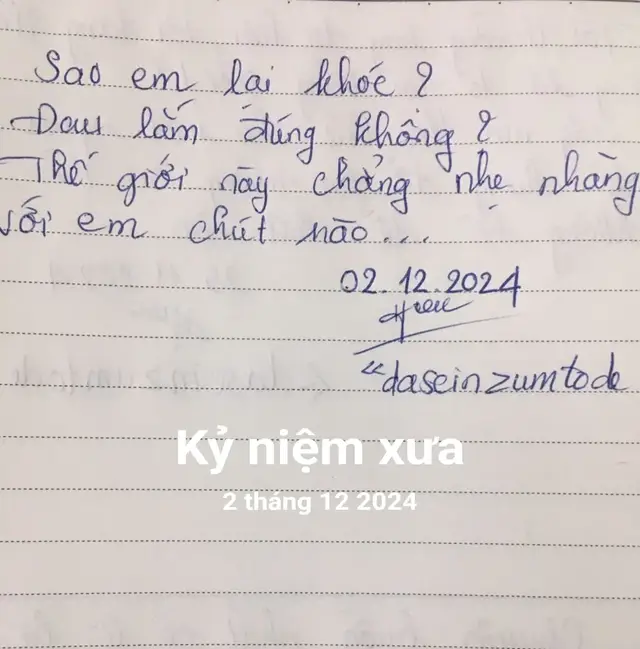 Sao em lại khóc ?
Đau lắm đúng không ?
Thế giới này chẳng nhẹ nhàng
với em chút nào...
02.12.2024
"daseinzumtode
Kỷ niệm xưa
2 tháng 12 2024